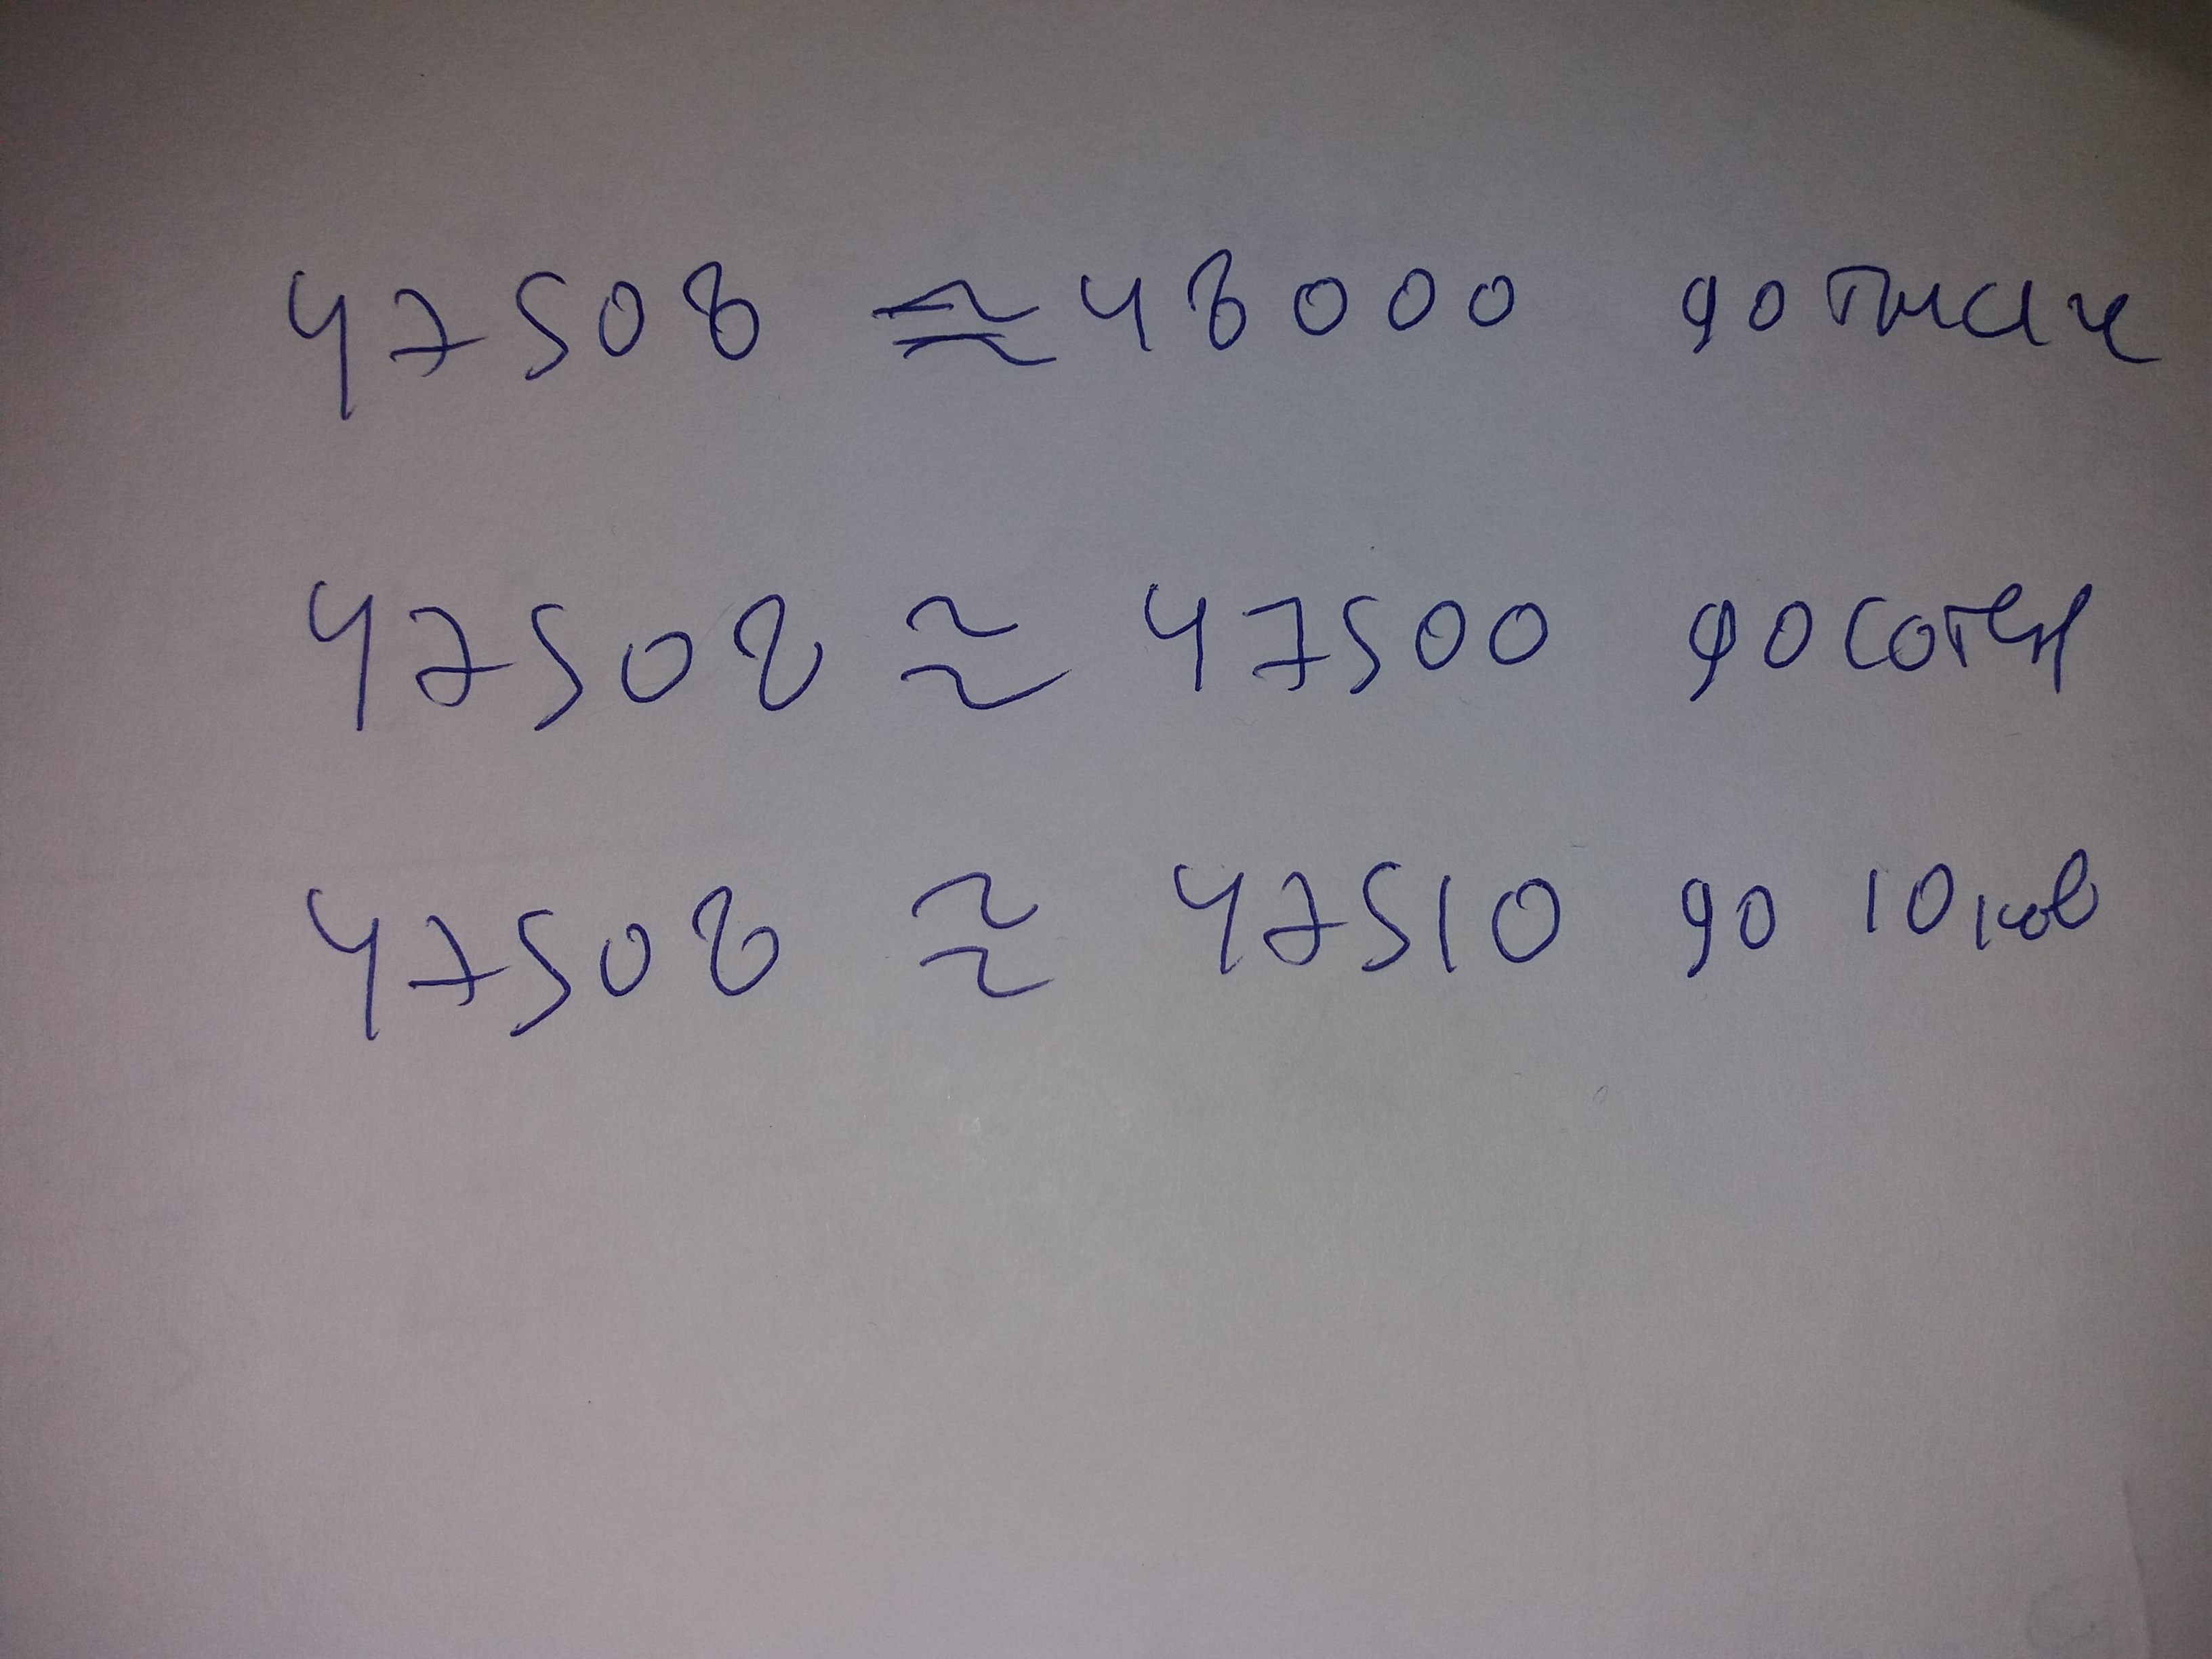 47508 ≈ 48000 до тысяч
47508 ≈ 47500 до сотен
47508 ≈ 47510 до 10ков